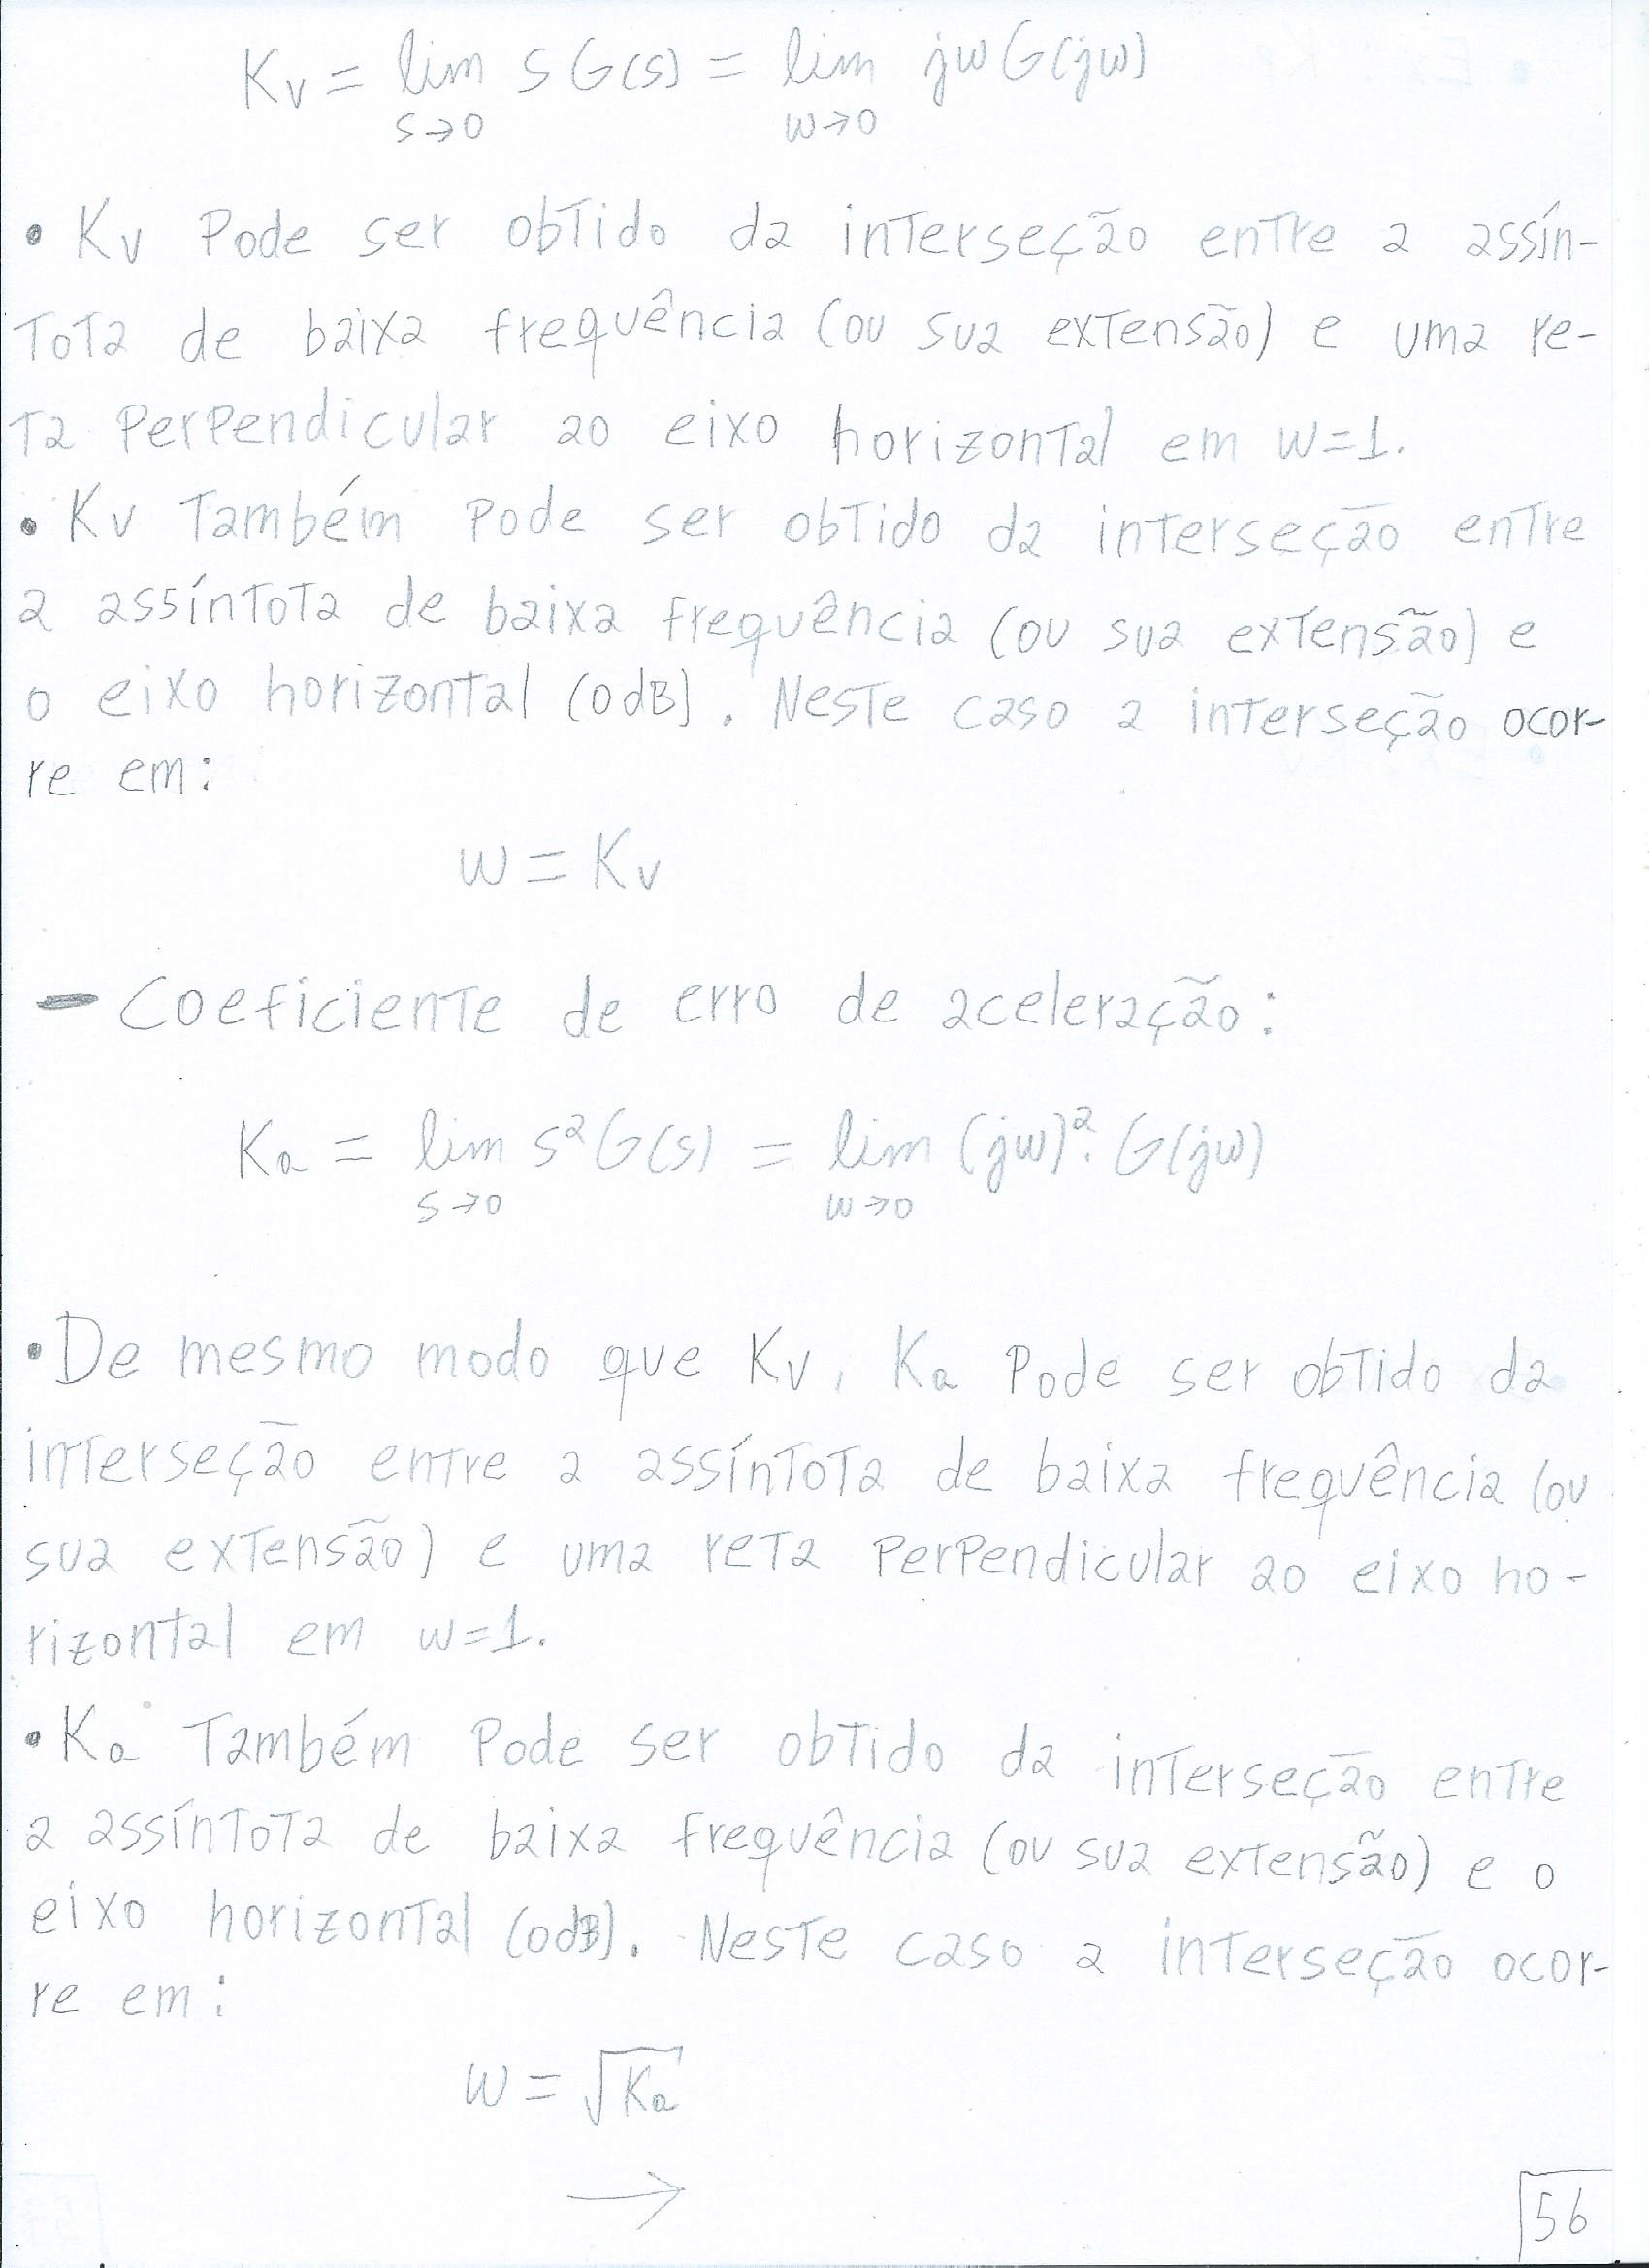 Kv = lim s G(s) = lim jw G(jw)
s→0 w→0
• Kv Pode ser obtido da interseção entre a assín-
tota de baixa frequência (ou sua extensão) e uma re-
ta perpendicular ao eixo horizontal em w=1.
• Kv Também Pode ser obtido da interseção entre
a assíntota de baixa frequência (ou sua extensão) e
o eixo horizontal (0dB). Neste caso a interseção ocor-
re em:
w = Kv
- Coeficiente de erro de aceleração:
Ka = lim s² G(s) = lim (jw)². G(jw)
s→0 w→0
• De mesmo modo que Kv, Ka Pode ser obtido da
interseção entre a assíntota de baixa frequência (ou
sua extensão) e uma reta perpendicular ao eixo ho-
rizontal em w=1.
• Ka Também Pode ser obtido da interseção entre
a assíntota de baixa frequência (ou sua extensão) e o
eixo horizontal (0dB). Neste caso a interseção ocor-
re em:
w = √Ka
→
56